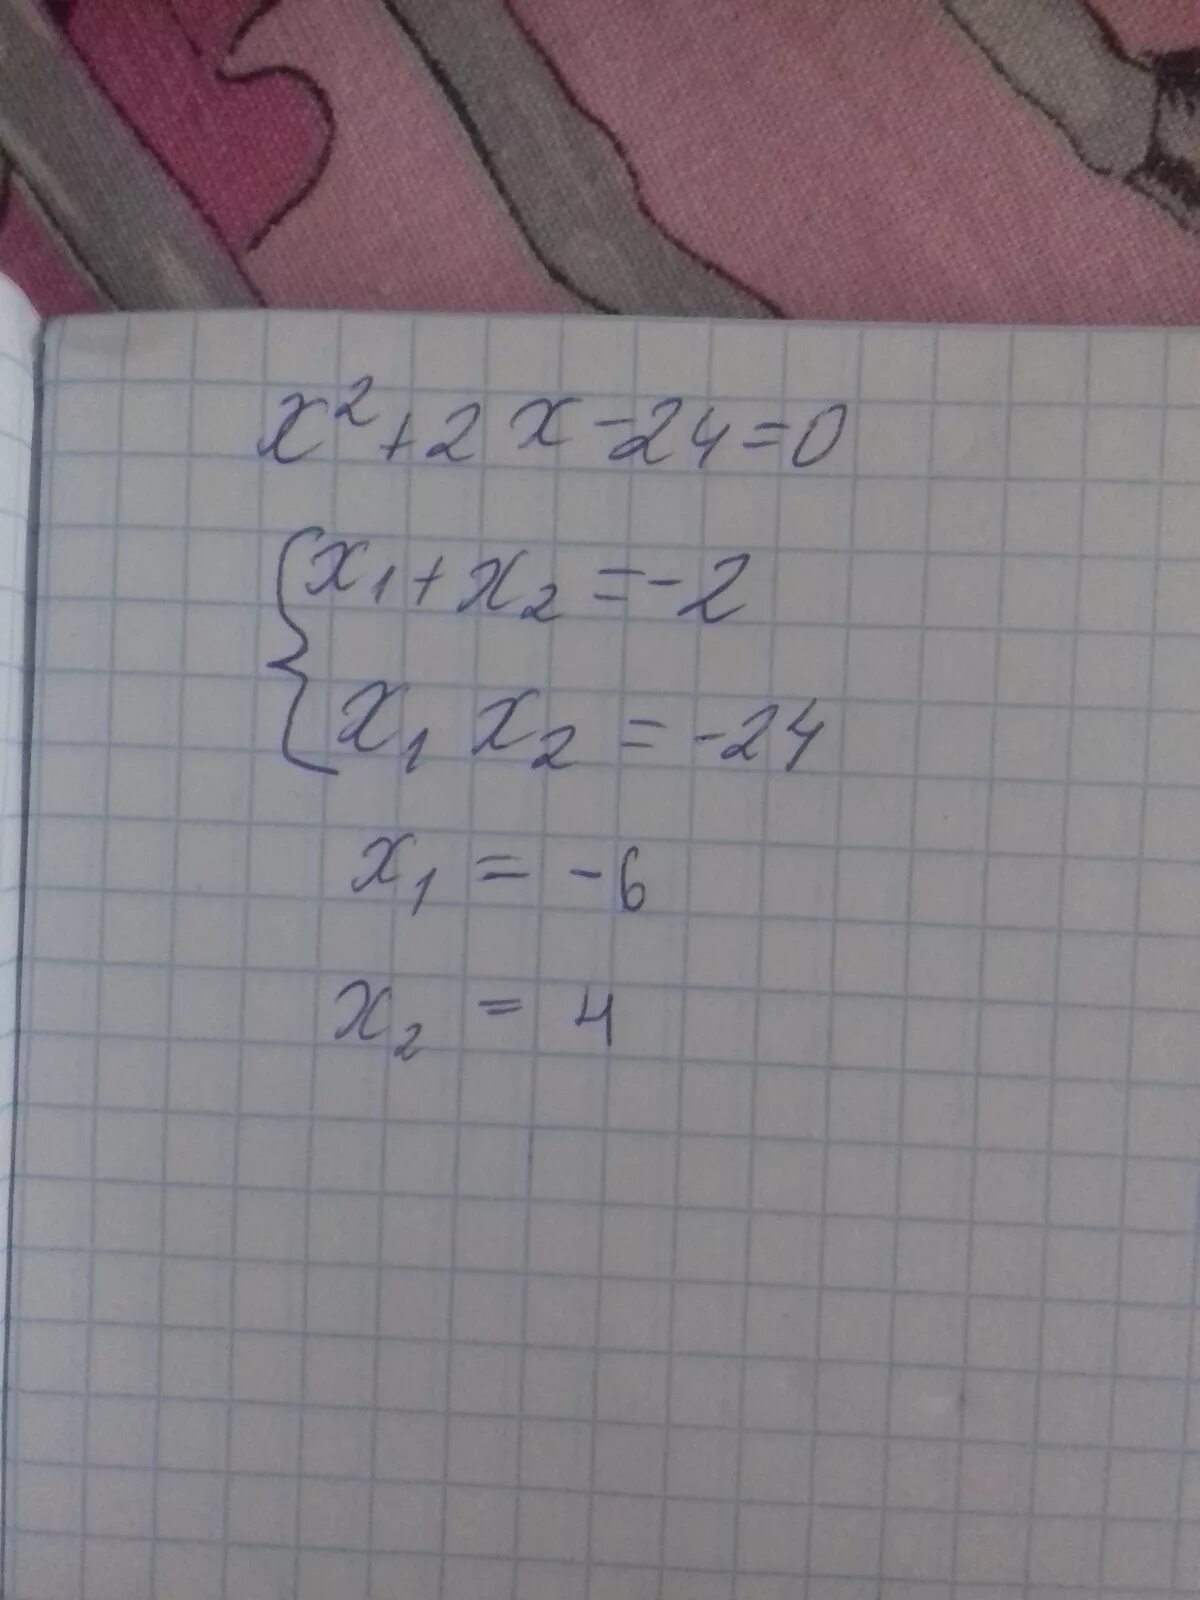 x²+2x-24=0
{x₁+x₂=-2
x₁ x₂=-24
x₁ = -6
x₂ = 4